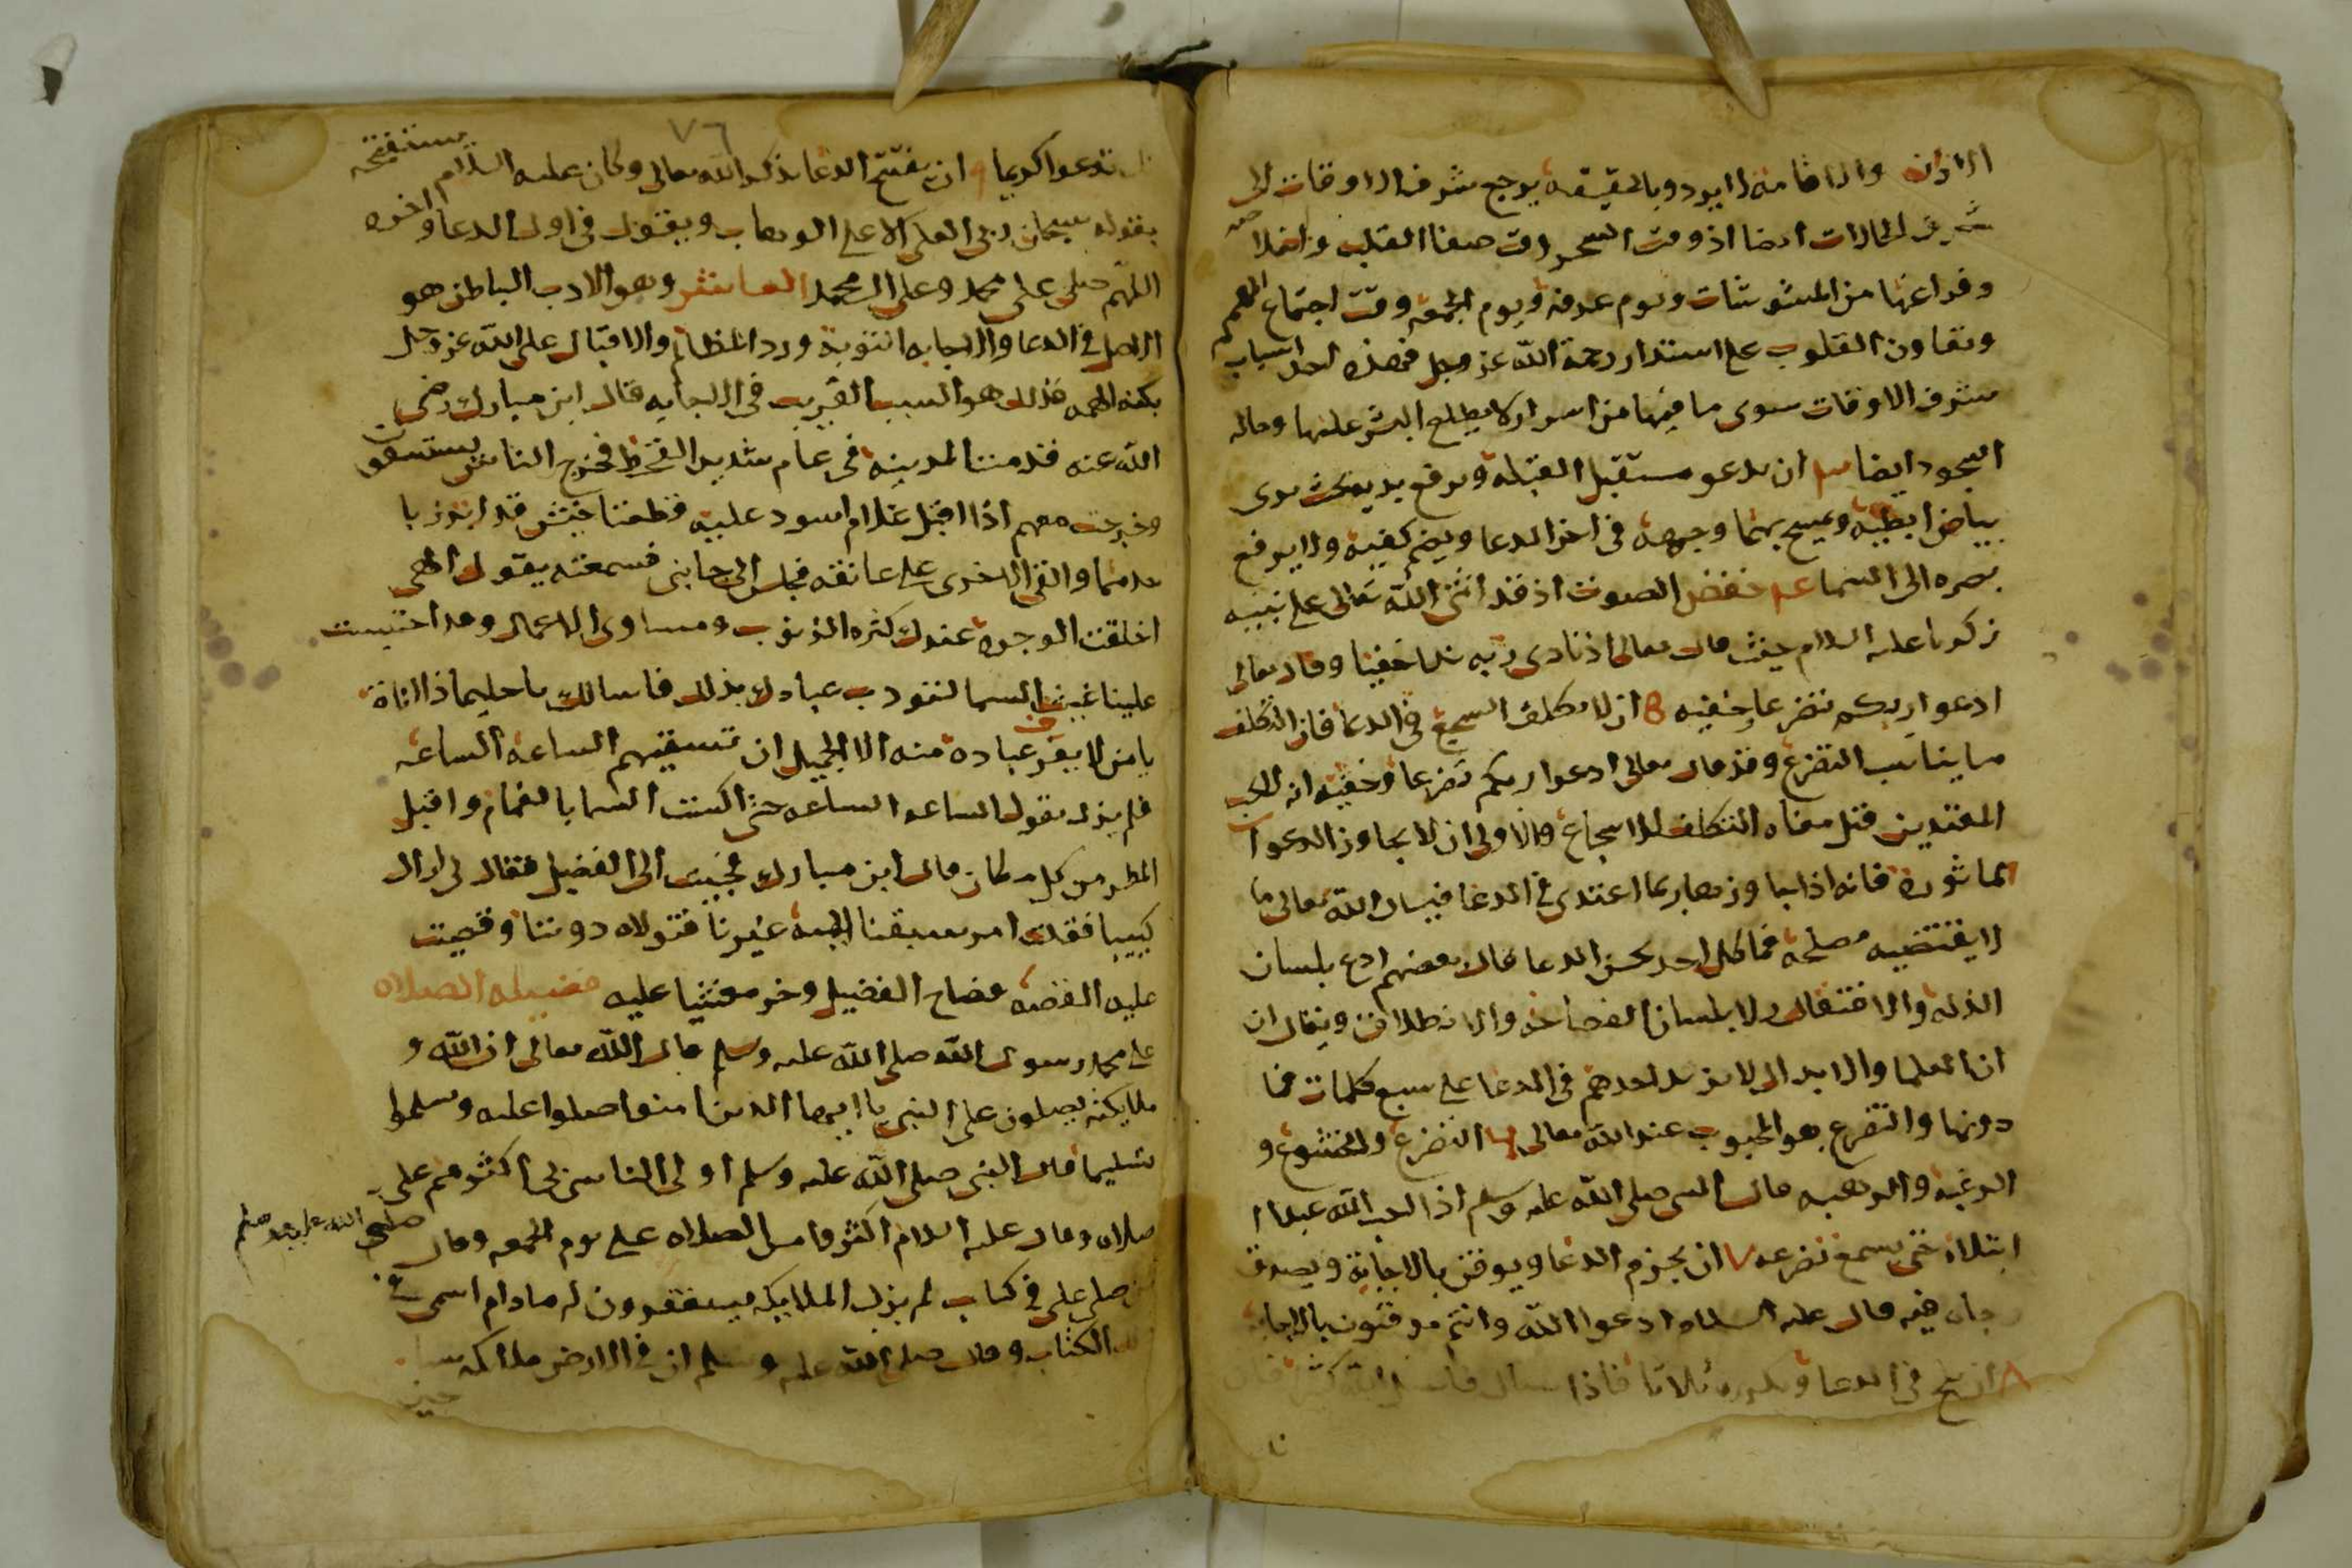 الاذان والاقامة لا يرد وبالحقيقه يرجع شرف الاوقات الى
شرف الحالات ايضا اذ وقت السحر وقت صفا القلب واخلاصه
وفراغها من المشوشات ويوم عرفه ويوم الجمعه وقت اجتماع الهمم
وتعاون القلوب على استدرار رحمة الله عز وجل فهذه احد اسباب
شرف الاوقات سوى ما فيها من اسرار لا يطلع البشر عليها وحاله
السجود ايضا ان يدعو مستقبل القبله ويرفع يديه بحيث يرى
بياض ابطيه ويمسح بهما وجهه فى اخر الدعا ويضم كفيه ولا يرفع
بصره الى السما خفض الصوت اذ قد اثنى الله تعالى على نبيه
زكريا عليه السلام حيث قال تعالى اذ نادى ربه ندا خفيا وقال تعالى
ادعوا ربكم تضرعا وخفيه ان لا يتكلف السجع فى الدعا فان التكلف
ما يناسب التضرع وقد قال تعالى ادعوا ربكم تضرعا وخفيه انه لا يحب
المعتدين قيل معناه التكلف للاسجاع والاولى ان لا يجاوز الدعوات
الماثورة فانه اذا جاوزها ربما اعتدى فى الدعا فيسال الله تعالى ما
لا يقتضيه مصلحته فما كل احد يحسن الدعا قال بعضهم ادع بلسان
الذله والافتقار لا بلسان الفصاحه والانطلاق ويقال ان
ان العلما والابدال لا يزيد احدهم فى الدعا على سبع كلمات فما
دونها والتضرع هو المحبوب عند الله تعالى التضرع والخشوع و
الرغبه والرهبه قال النبى صلى الله عليه وسلم اذا احب الله عبدا
ابتلاه حتى يسمع تضرعه ٧ ان يجزم الدعا ويوقن بالاجابة ويصدق
رجاه فيه قال عليه السلام ادعوا الله وانتم موقنون بالاجابه
٨ ان يلح فى الدعا ويكرره ثلاثا فاذا سال فاسال الله كثيرا فانك
٧٦
تدعوا كريما ٩ ان يفتتح الدعا بذكر الله تعالى وكان عليه السلام يستفتحه
بقوله سبحان ربى العلى الاعلى الوهاب ويقول فى اول الدعا واخره
اللهم صلى على محمد وعلى ال محمد العاشر وهو الادب الباطن هو
الاصل فى الدعا والاجابه التوبة ورد المظالم والاقبال على الله عز وجل
بكنه الهمه فذلك هو السبب القريب فى الاجابه قال ابن مبارك رضى
الله عنه قدمنا المدينه فى عام شديد القحط فخرج الناس يستسقون
وخرجت معهم اذا اقبل غلام اسود عليه قطعتا خيش قد اتزر با
حدهما والقى الاخرى على عاتقه فجلس الى جانبى فسمعته يقول الهى
اخلقت الوجوه عندك كثره الذنوب ومساوى الاعمال وقد احتبست
علينا غيث السما لتودب عبادك بذلك فاسالك يا حليما ذا اناة
يا من لا يعرف عباده منه الا الجميل ان تسقيهم الساعه الساعه
فلم يزل يقول الساعه الساعه حتى اكتست السما بالغمام واقبل
المطر من كل مكان قال ابن مبارك فجيت الى الفضيل فقال لى اراك
كييبا فقلت امر سبقنا اليه غيرنا فتولاه دوننا وقصيت
عليه القصه فصاح الفضيل وخر مغشيا عليه فضيله الصلاه
على محمد رسول الله صلى الله عليه وسلم قال الله تعالى ان الله و
ملايكته يصلون على النبى يا ايها الذين امنوا صلوا عليه وسلموا
تسليما قال النبى صلى الله عليه وسلم اولى الناس بى اكثرهم على
صلاه وقال عليه السلام اكثروا من الصلاه على يوم الجمعه وقال صلى الله عليه وسلم
من صلى على فى كتاب لم يزل الملايكه يستغفرون له ما دام اسمى فى
ذلك الكتاب وقال صلى الله عليه وسلم ان فى الارض ملائكه